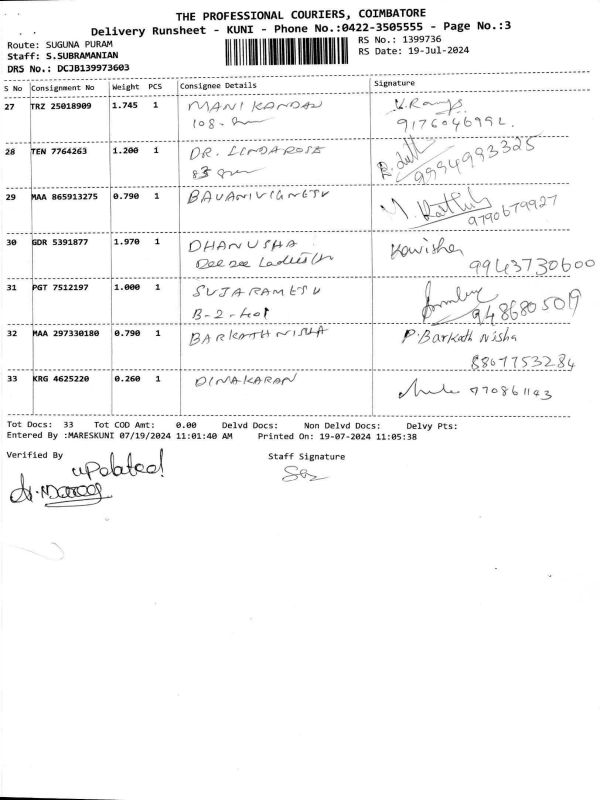 THE PROFESSIONAL COURIERS, COIMBATORE
Delivery Runsheet - KUNI - Phone No.:0422-3505555 - Page No.:3
Route: SUGUNA PURAM RS No.: 1399736
Staff: S.SUBRAMANIAN RS Date: 19-Jul-2024
DRS No.: DCJB139973603
S No Consignment No Weight PCS Consignee Details Signature
27 TRZ 25018909 1.745 1 MANIKANDAN
108-
28 TEN 7764263 1.200 1 DR. LINDAROSE 9994993325
83
29 MAA 865913275 0.790 1 BAVANIVIGNESU 9790679927
30 GDR 5391877 1.970 1 DHANUSHA Kavisha
Dee Dee Ladies 9943730600
31 PGT 7512197 1.000 1 SUJARAMESU
B-2- 9486805019
32 MAA 297330180 0.790 1 BARKATHNISHA P.Barkath Nisha
8867753284
33 KRG 4625220 0.260 1 DINAKARAN 770861143
Tot Docs: 33 Tot COD Amt: 0.00 Delvd Docs: Non Delvd Docs: Delvy Pts:
Entered By :MARESKUNI 07/19/2024 11:01:40 AM Printed On: 19-07-2024 11:05:38
Verified By Staff Signature
updated!